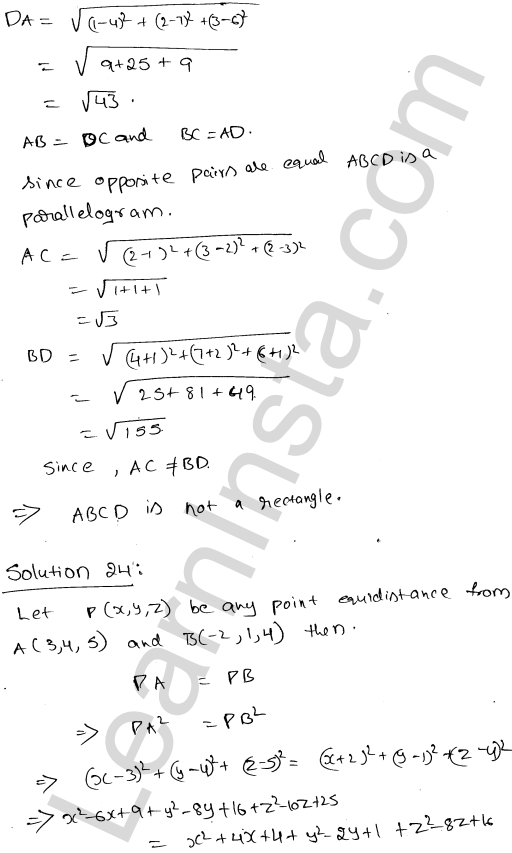 DA = √(1-4)² + (2-7)² + (3-6)²
= √9+25+9
= √43 .
AB = DC and BC = AD.
Since opposite pairs are equal ABCD is a
parallelogram.
AC = √(2-1)² + (3-2)² + (2-3)²
= √1+1+1
= √3
BD = √(4+1)² + (7+2)² + (6+1)²
= √25+81+49
= √155
Since , AC ≠ BD.
⇒ ABCD is not a rectangle.
Solution 24:
Let P(x,y,z) be any point equidistance from
A(3,4,5) and B(-2,1,4) then.
PA = PB
⇒ PA² = PB²
⇒ (x-3)² + (y-4)² + (z-5)² = (x+2)² + (y-1)² + (z-4)²
⇒ x²-6x+9+y²-8y+16+z²-10z+25
= x²+4x+4+y²-2y+1+z²-8z+16
LearnInsta.com